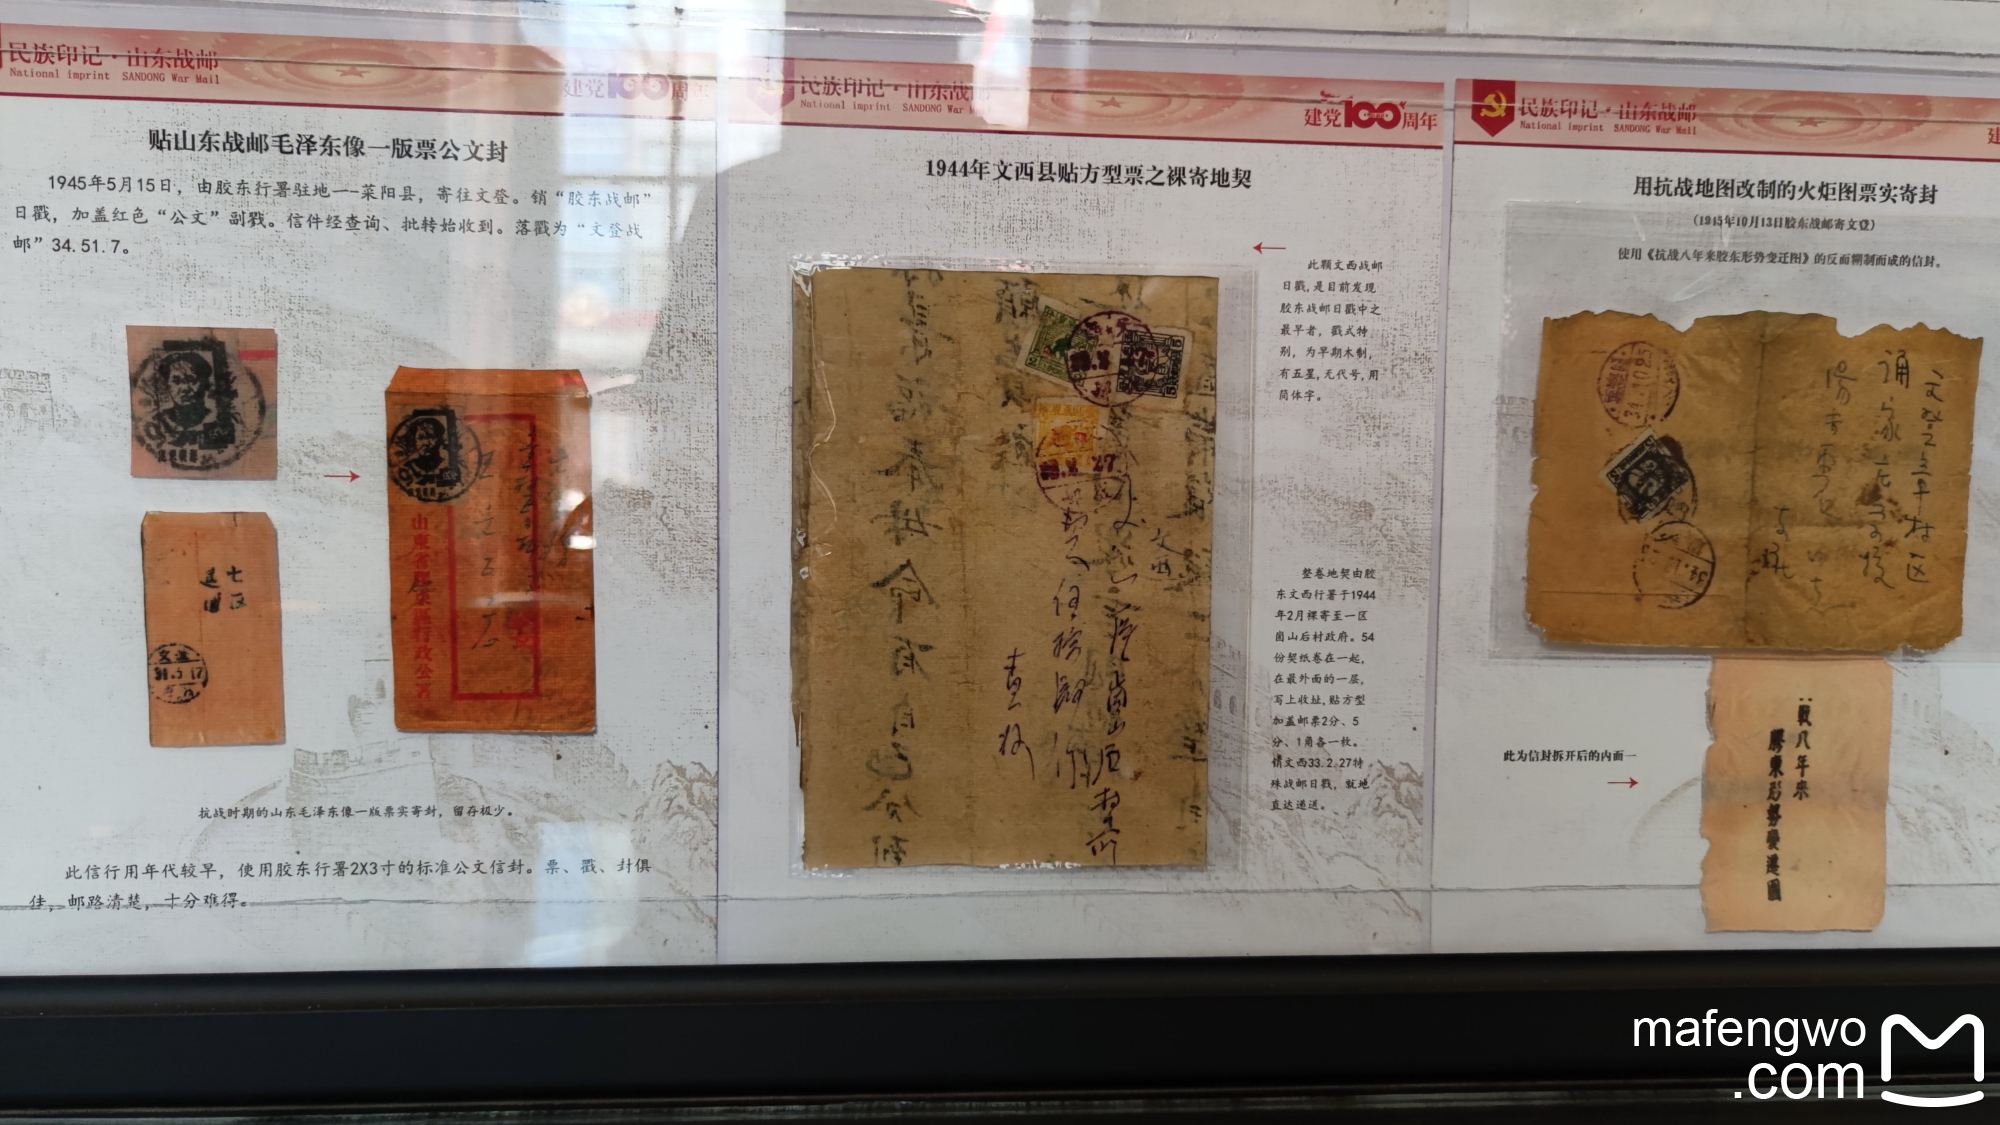 民族印记·山东战邮
National imprint SANDONG War Mail
建党100周年
贴山东战邮毛泽东像一版票公文封
1945年5月15日，由胶东行署驻地——莱阳县，寄往文登。销“胶东战邮”
日戳，加盖红色“公文”副戳。信件经查询、批转始收到。落戳为“文登战
邮”34.51.7。
七区
退回
山東省膠東區行政公署
抗战时期的山东毛泽东像一版票实寄封，留存极少。
此信行用年代较早，使用胶东行署2X3寸的标准公文信封。票、戳、封俱
佳，邮路清楚，十分难得。
民族印记·山东战邮
National imprint SANDONG War Mail
建党100周年
1944年文西县贴方型票之裸寄地契
此颗文西战邮
日戳，是目前发现
胶东战邮日戳中之
最早者，戳式特
别，为早期木制，
有五星，无代号，用
简体字。
整卷地契由胶
东文西行署于1944
年2月裸寄至一区
崮山后村政府。54
份契纸卷在一起，
在最外面的一层，
写上收址，贴方型
加盖邮票2分、5
分、1角各一枚。
销文西33.2.27特
殊战邮日戳，就地
直达递送。
文西
民族印记·山东战邮
National imprint SANDONG War Mail
建
用抗战地图改制的火炬图票实寄封
（1945年10月13日胶东战邮寄文登）
使用《抗战八年来胶东形势变迁图》的反面糊制而成的信封。
此为信封拆开后的内面一
戰八年來
膠東形勢變遷圖
mafengwo
.com